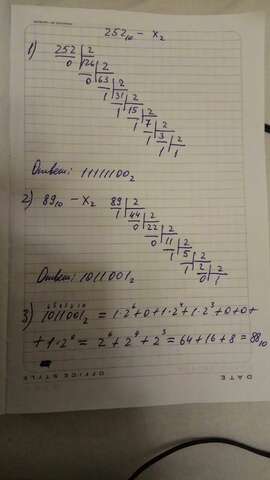 252₁₀ – X₂
1) 252 | 2
0 126 | 2
0 63 | 2
1 31 | 2
1 15 | 2
1 7 | 2
1 3 | 2
1 1
Ответ: 11111100₂
2) 89₁₀ – X₂ 89 | 2
1 44 | 2
0 22 | 2
0 11 | 2
1 5 | 2
1 2 | 2
0 1
Ответ: 1011001₂
6 5 4 3 2 1 0
3) 1011001₂ = 1·2⁶+0+1·2⁴+1·2³+0+0+
+1·2⁰ = 2⁶+2⁴+2³ = 64+16+8 = 88₁₀
DATE OFFICE STYLE